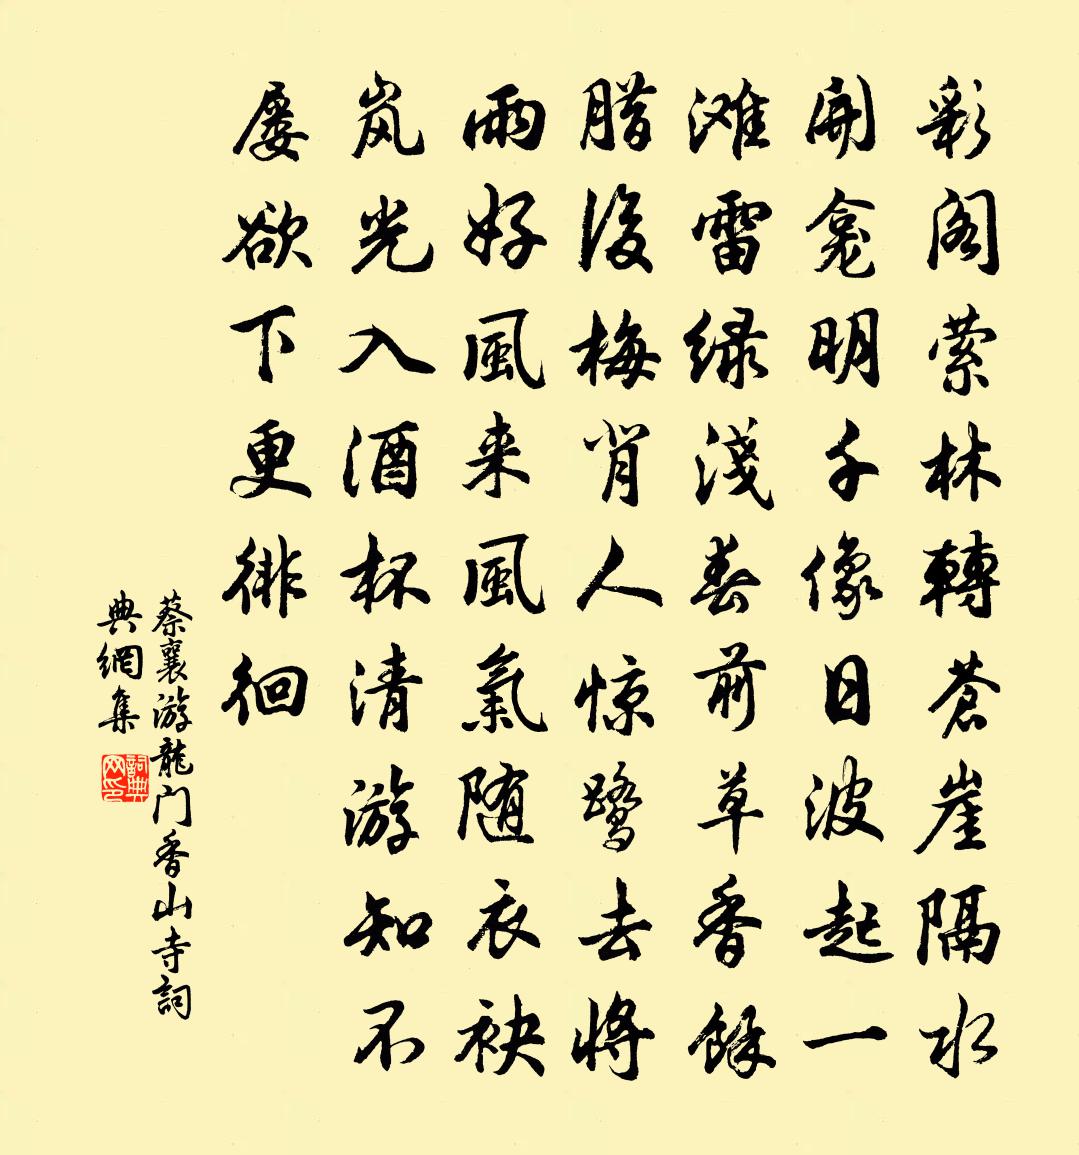 彩阁萦林轉蒼崖隔水
開龛明千像日波起一
滩雷绿淺春前草香餘
腊後梅背人惊鹭去將
雨好風来風氣随衣袂
岚光入酒杯清游知不
屡欲下更徘徊
蔡襄游龍门香山寺詞
典網集
詞典
网印